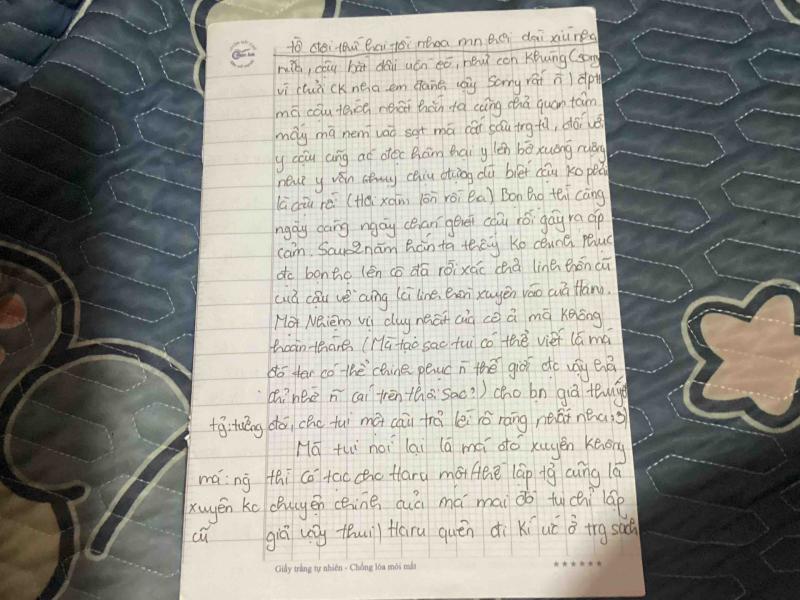 tò đời thứ hai tới nhoa mn hơi dại xíu nên
nữa, cậu bắt đầu uốn éo, như con khùng (sorry
vì chửi CK nha em đang vậy Sorry rất n) áp
mà cậu thích nhất hắn ta cũng chả quan tâm
mấy mà nem vào sọt mà cất sâu trg tủ, đối với
y cậu cũng ác độc hãm hại y lên bờ xuống ruộng
như y vẫn chịu đựng dù biết cậu ko phải
là cậu rồi (Hơi xàm lồn rồi ha) Bọn họ thì càng
ngày càng ngày chán ghét cậu rồi gây ra áp
cảm. Sau 2 năm hắn ta thấy ko chinh phục
đc bọn họ lên cô đã rời xác chả linh hồn cũ
của cậu về cũng là linh hồn xuyên vào của Haru.
Một Nhiệm vụ duy nhất của cô ả mà không
hoàn thành (Mà tạo sao tui có thể viết là má
đó có thể chinh phục n thế giới đc vậy hả
chỉ nhờ n cái trên thôi sao?) cho bn giả thuyết
tg: tưởng đó, cho tui một câu trả lời rõ ràng nhất nha :)
Mà tui nói lại là má đó xuyên không
má: ng thì có tác cho Haru một thế lập tg cũng là
xuyên ko chuyên chinh của má mai đó tui chỉ lập
cũ giả vậy thui) Haru quên đi kí ức ở trg sách
Giấy trắng tự nhiên - Chống lóa mỏi mắt